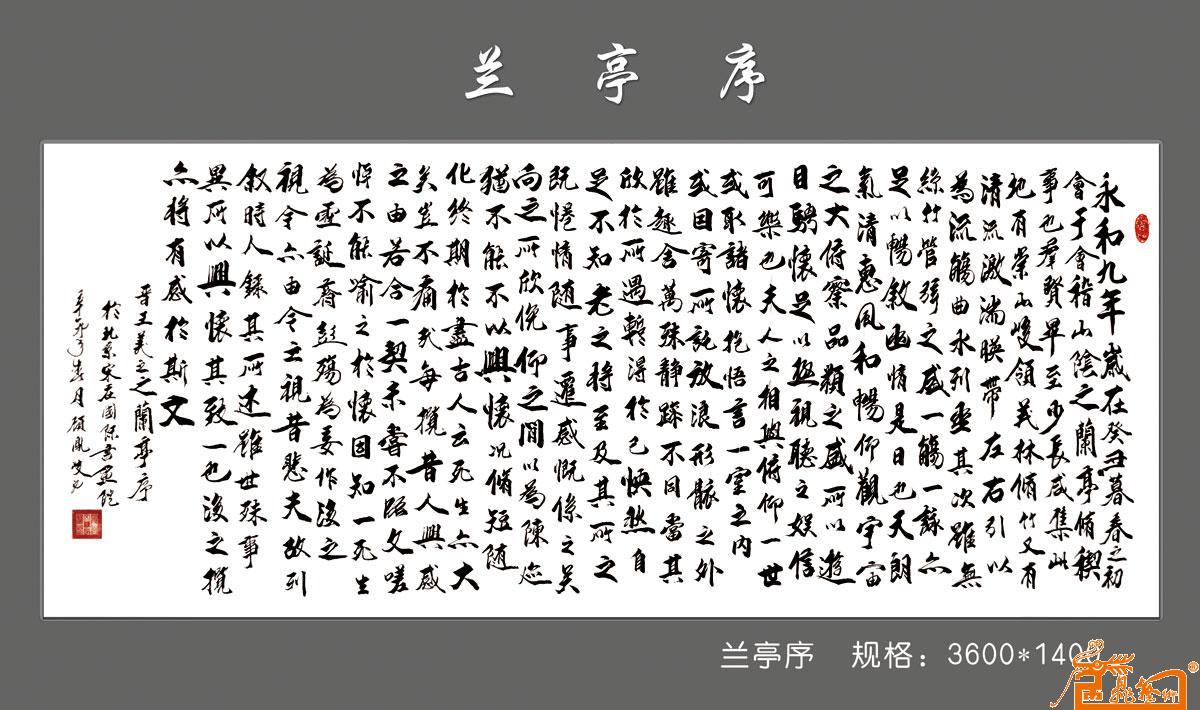 兰亭序
永和九年歲在癸丑暮春之初
會于會稽山陰之蘭亭脩稧
事也羣賢畢至少長咸集此
地有崇山峻領茂林脩竹又有
清流激湍暎帶左右引以
為流觴曲水列坐其次雖無
絲竹管弦之盛一觴一詠亦
足以暢敘幽情是日也天朗
氣清惠風和暢仰觀宇宙
之大俯察品類之盛所以遊
目騁懷足以極視聽之娛信
可樂也夫人之相與俯仰一世
或取諸懷抱悟言一室之內
或因寄所託放浪形骸之外
雖趣舍萬殊靜躁不同當其
欣於所遇暫得於己怏然自
足不知老之將至及其所之
既惓情隨事遷感慨係之矣
向之所欣俛仰之間以為陳迹
猶不能不以興懷況脩短隨
化終期於盡古人云死生亦大
矣豈不痛哉每攬昔人興感
之由若合一契未嘗不臨文嗟
悼不能喻之於懷固知一死生
為虛誕齊彭殤為妄作後之
視今亦由今之視昔悲夫故列
敘時人錄其所述雖世殊事
異所以興懷其致一也後之攬
亦將有感於斯文
晉王羲之之蘭亭序
於北京宋莊國際書畫院
辛卯年春月
兰亭序 规格：3600*1400